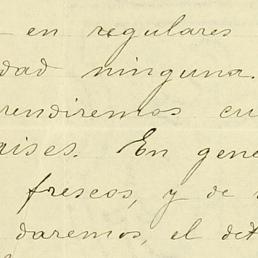 en regulares
dad ninguna.
rendiremos cu
aises. En gene
frescos, y de
daremos, el det